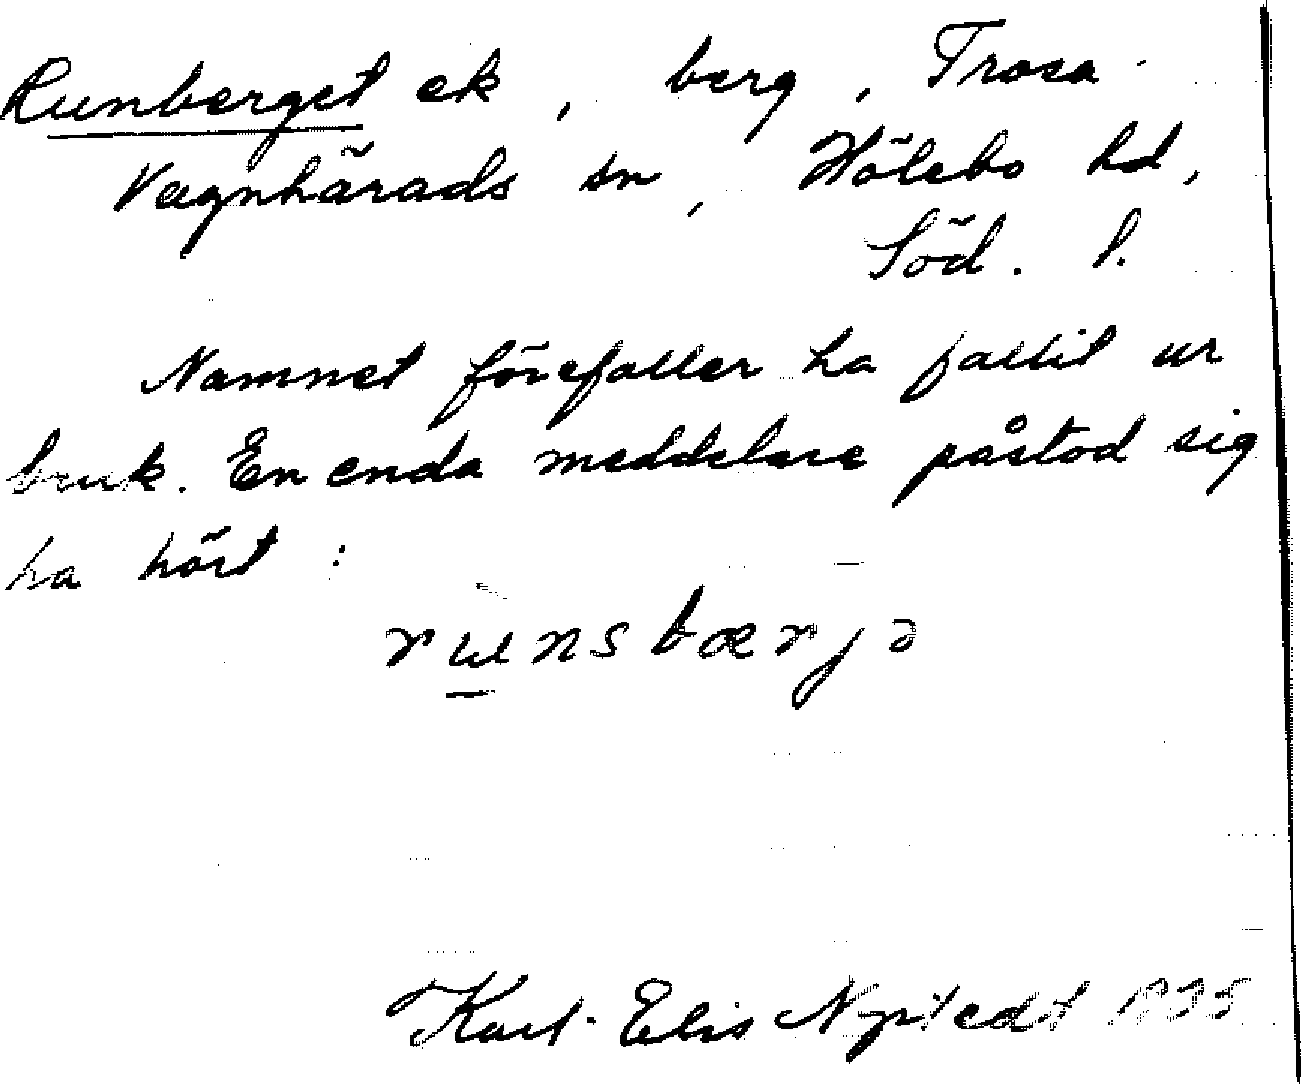 Runberget ek, berg, Trosa-
Vagnhärads sn, Hölebo hd,
Söd. l.
Namnet förefaller ha fallit ur
bruk. En enda meddelare påstod sig
ha hört :
runsbærjə
Karl-Elis Nystedt 1935